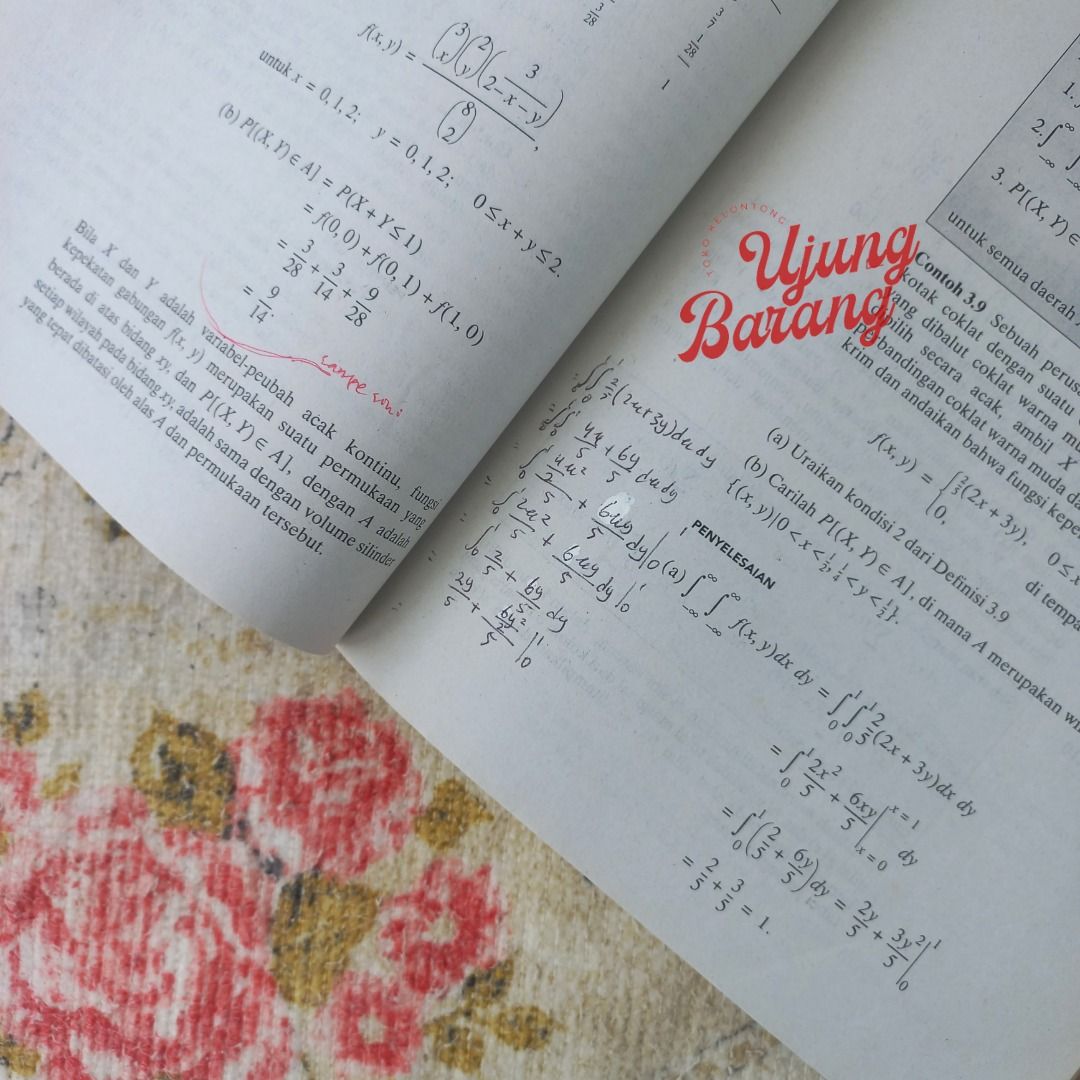 3/28
3/7
1/28
1
f(x, y) = (3 x)(2 y)(3 2−x−y) / (8 2),
untuk x = 0, 1, 2; y = 0, 1, 2; 0 ≤ x + y ≤ 2.
(b) P[(X, Y) ∈ A] = P(X + Y ≤ 1)
= f(0, 0) + f(0, 1) + f(1, 0)
= 3/28 + 3/14 + 9/28
= 9/14
sampe sini
Bila X dan Y adalah variabel-peubah acak kontinu, fungsi
kepekatan gabungan f(x, y) merupakan suatu permukaan yang
berada di atas bidang xy, dan P[(X, Y) ∈ A], dengan A adalah
setiap wilayah pada bidang xy, adalah sama dengan volume silinder
yang tepat dibatasi oleh alas A dan permukaan tersebut.
1.
2. ∫∞ −∞ ∫ −∞
3. P[(X, Y) ∈
untuk semua daerah
TOKO KELONTONG
Ujung
Barang
Contoh 3.9 Sebuah perus
kotak coklat dengan suatu
yang dibalut coklat warna mu
dipilih secara acak, ambil X
perbandingan coklat warna muda da
krim dan andaikan bahwa fungsi kepe
f(x, y) = { 2/5(2x + 3y), 0 ≤ x
0, di tempa
(a) Uraikan kondisi 2 dari Definisi 3.9
(b) Carilah P[(X, Y) ∈ A], di mana A merupakan wi
{(x, y)|0 < x < 1/2, 1/4 < y < 1/2}.
PENYELESAIAN
(a) ∫∞ −∞ ∫∞ −∞ f(x, y)dx dy = ∫1 0 ∫1 0 2/5(2x + 3y)dx dy
= ∫1 0 2x²/5 + 6xy/5 |x=1 x=0 dy
= ∫1 0 (2/5 + 6y/5)dy = 2y/5 + 3y²/5 |1 0
= 2/5 + 3/5 = 1.
= ∫1 0 ∫1 0 2/5(2x+3y)dx dy
= ∫1 0 ∫1 0 4x/5 + 6y/5 dx dy
= ∫1 0 4x²/2/5 + 6xy/5 dy |1 0
= ∫1 0 2x²/5 + 6xy/5 dy |1 0
= ∫1 0 2/5 + 6y/5 dy
= 2y/5 + 6y²/2/5 |1 0
=